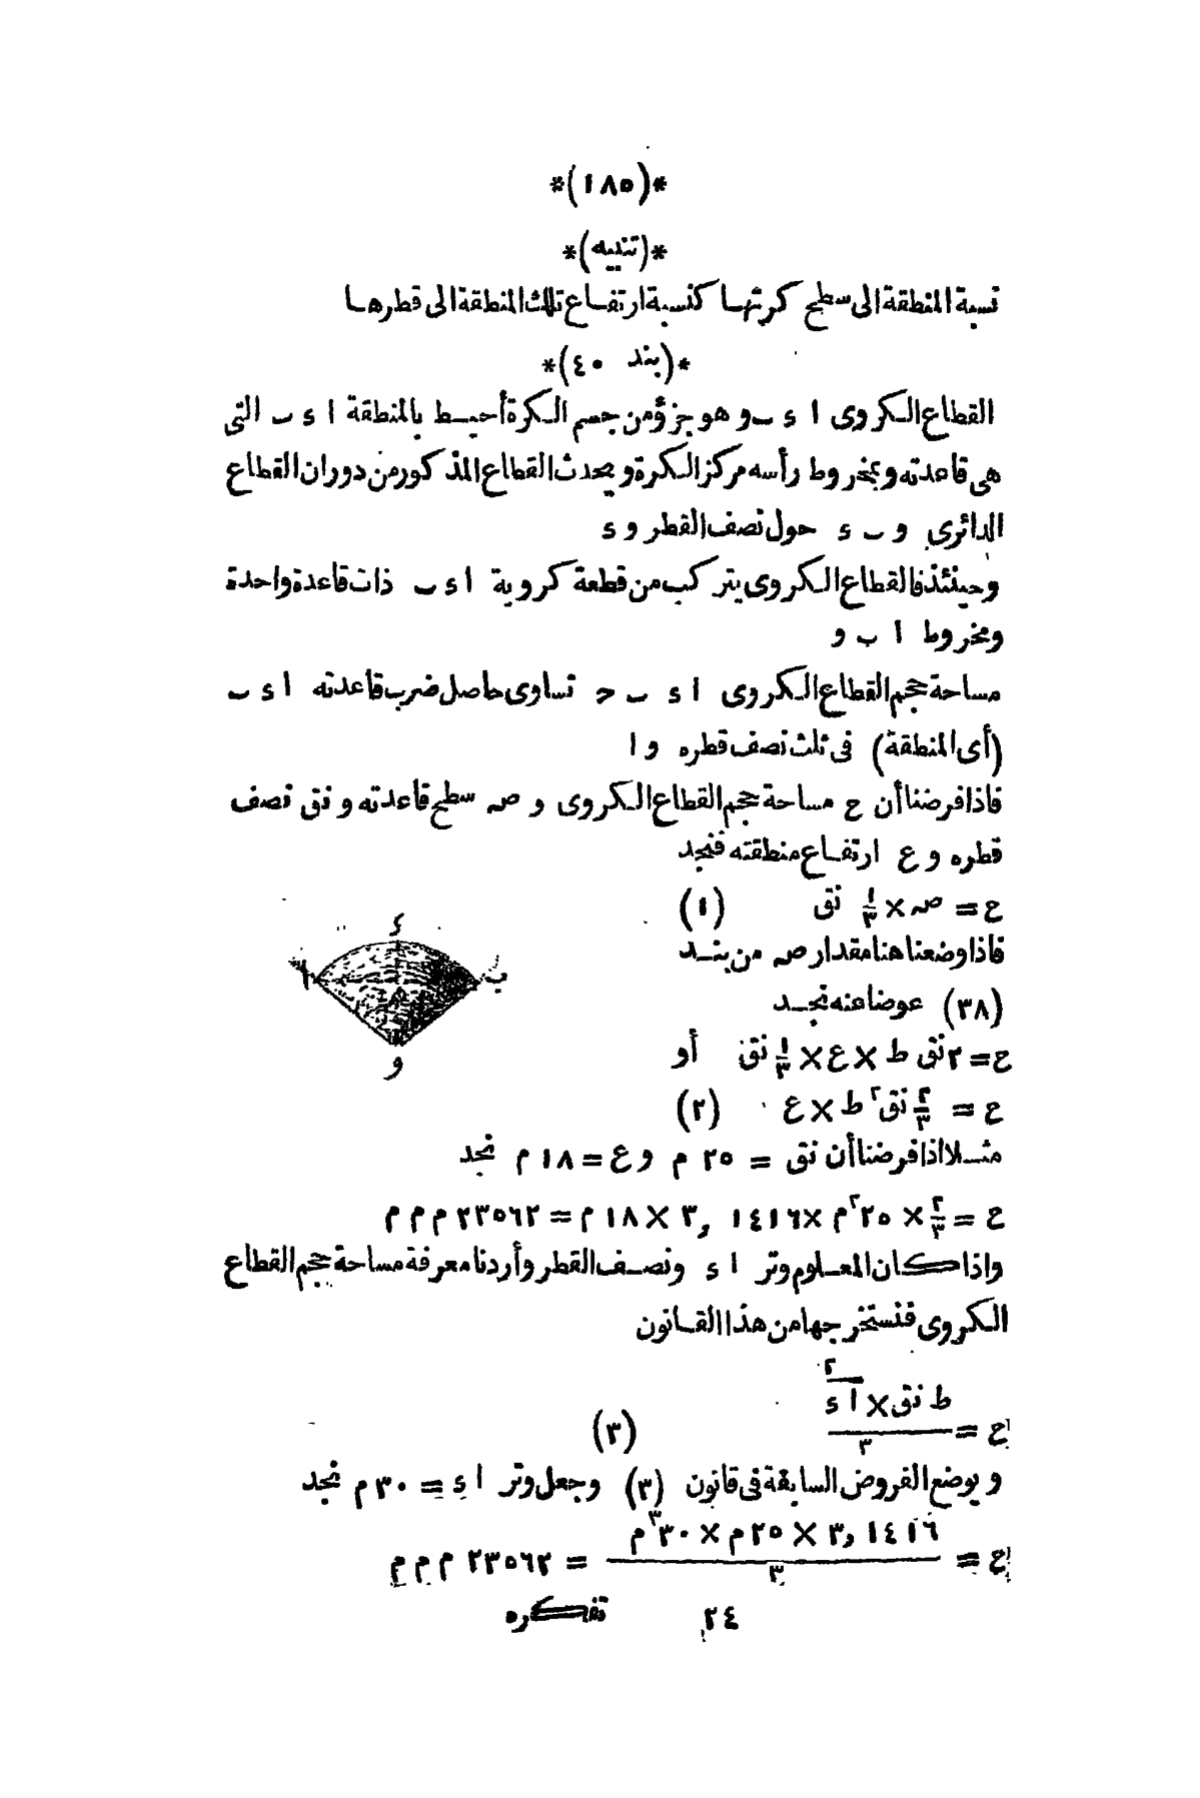 *(١٨٥)*
*(تنبيه)*
نسبة المنطقة الى سطح كرتها كنسبة ارتفاع تلك المنطقة الى قطرها
*(بند ٤٠)*
القطاع الكروى ا ء ب و هو جزؤ من جسم الكرة أحيط بالمنطقة ا ء ب التى
هى قاعدته وبمخروط رأسه مركز الكرة ويحدث القطاع المذكور من دوران القطاع
الدائرى و ب ء حول نصف القطر و ء
وحينئذ فالقطاع الكروى يتركب من قطعة كروية ا ء ب ذات قاعدة واحدة
ومخروط ا ب و
مساحة حجم القطاع الكروى ا ء ب ح تساوى حاصل ضرب قاعدته ا ء ب
(أى المنطقة) فى ثلث نصف قطره و ا
فاذا فرضنا أن ح مساحة حجم القطاع الكروى و صہ سطح قاعدته و نق نصف
قطره و ع ارتفاع منطقته فنجد
ح = صہ × ١/٣ نق (١)
فاذا وضعنا هنا مقدار صہ من بند
(٣٨) عوضا عنه نجد
ح = ٢ نق ط × ع × ١/٣ نق أو
ح = ٢/٣ نق٢ ط × ع (٢)
مثلا اذا فرضنا أن نق = ٢٥ م و ع = ١٨ م نجد
ح = ٢/٣ × ٢٥٢م × ٣,١٤١٦ × ١٨ م = ٢٣٥٦٢ م م م
واذا كان المعلوم وتر ا ء ونصف القطر وأردنا معرفة مساحة حجم القطاع
الكروى فنستخرجها من هذا القانون
ح = ط نق × ا ء٢ / ٣ (٣)
و بوضع الفروض السابقة فى قانون (٣) وجعل وتر ا ء = ٣٠ م نجد
ح = ٣,١٤١٦ × ٢٥ م × ٣٠٣م / ٣ = ٢٣٥٦٢ م م م
٢٤ تفكره
ء
ا
ب
و